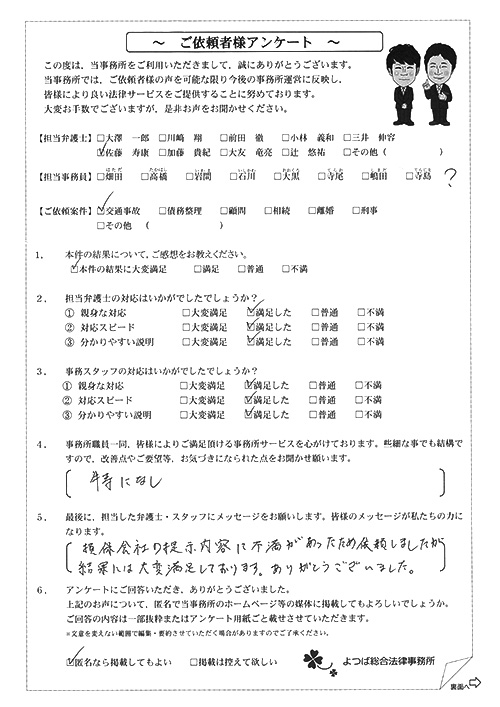 ～ ご依頼者様アンケート ～
この度は，当事務所をご利用いただきまして，誠にありがとうございます。
当事務所では，ご依頼者様の声を可能な限り今後の事務所運営に反映し，
皆様により良い法律サービスをご提供することに努めております。
大変お手数でございますが，是非お声をお聞かせください。
【担当弁護士】□大澤 一郎 □川﨑 翔 □前田 徹 □小林 義和 □三井 伸容
☑佐藤 寿康 □加藤 貴紀 □大友 竜亮 □辻 悠祐 □その他（ ）
【担当事務員】□畑田 □高橋 □岩間 □石川 □大黒 □寺尾 □嶋田 □寺島 ？
【ご依頼案件】☑交通事故 □債務整理 □顧問 □相続 □離婚 □刑事
□その他 （ ）
1． 本件の結果について，ご感想をお教えください。
☑本件の結果に大変満足 □満足 □普通 □不満
2． 担当弁護士の対応はいかがでしたでしょうか？
① 親身な対応 □大変満足 ☑満足した □普通 □不満
② 対応スピード □大変満足 ☑満足した □普通 □不満
③ 分かりやすい説明 □大変満足 ☑満足した □普通 □不満
3． 事務スタッフの対応はいかがでしたでしょうか？
① 親身な対応 □大変満足 ☑満足した □普通 □不満
② 対応スピード □大変満足 ☑満足した □普通 □不満
③ 分かりやすい説明 □大変満足 ☑満足した □普通 □不満
4． 事務所職員一同，皆様によりご満足頂ける事務所サービスを心がけております。些細な事でも結構で
すので，改善点やご要望等，お気づきになられた点をお聞かせ願います。
特になし
5． 最後に，担当した弁護士・スタッフにメッセージをお願いします。皆様のメッセージが私たちの力に
なります。
損保会社の提示内容に不満があったため依頼しましたが
結果には大変満足しております。ありがとうございました。
6． アンケートにご回答いただき，ありがとうございました。
上記のお声について，匿名で当事務所のホームページ等の媒体に掲載してもよろしいでしょうか。
ご回答の内容は一部抜粋またはアンケート用紙ごと載せさせていただきます。
※文意を変えない範囲で編集・要約させていただく場合がありますのでご了承ください。
☑匿名なら掲載してもよい □掲載は控えて欲しい よつば総合法律事務所
裏面へ